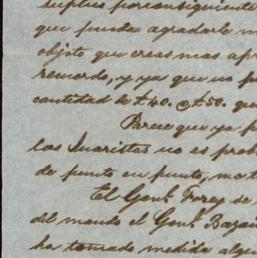 suplus por consiguiente
que pueda agradarle m
objeto que creas mas apr
recuerdo, y ya que no p
cantidad de £40. @ £50. que
Parece que ya p
los Juaristas no es prob
de punto en punto, ma t
El Genl. Forey se
del mando el Genl. Bazai
ha tomado medida algu